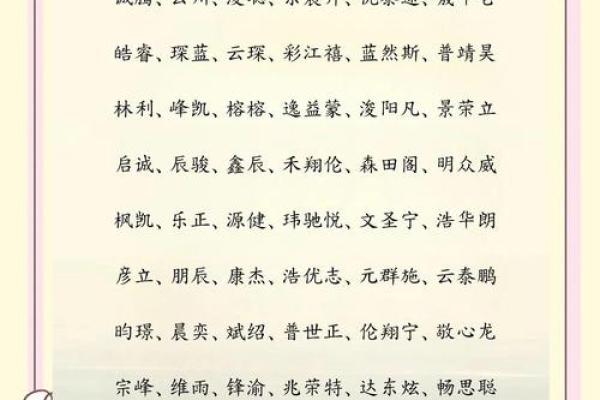 皓睿、琛蓝、云琛、彩江禧、蓝然斯、普靖昊
林利、峰凯、榕榕、逸益蒙、浚阳凡、景荣立
启诚、辰骏、鑫辰、禾翔伦、森田阁、明众威
枫凯、乐正、源健、玮驰悦、文圣宁、浩华朗
彦立、朋辰、康杰、浩优志、元群施、云泰鹏
昀璟、晨奕、斌绍、普世正、伦翔宁、敬心龙
宗峰、维雨、锋渝、兆荣特、达东炫、畅思聪